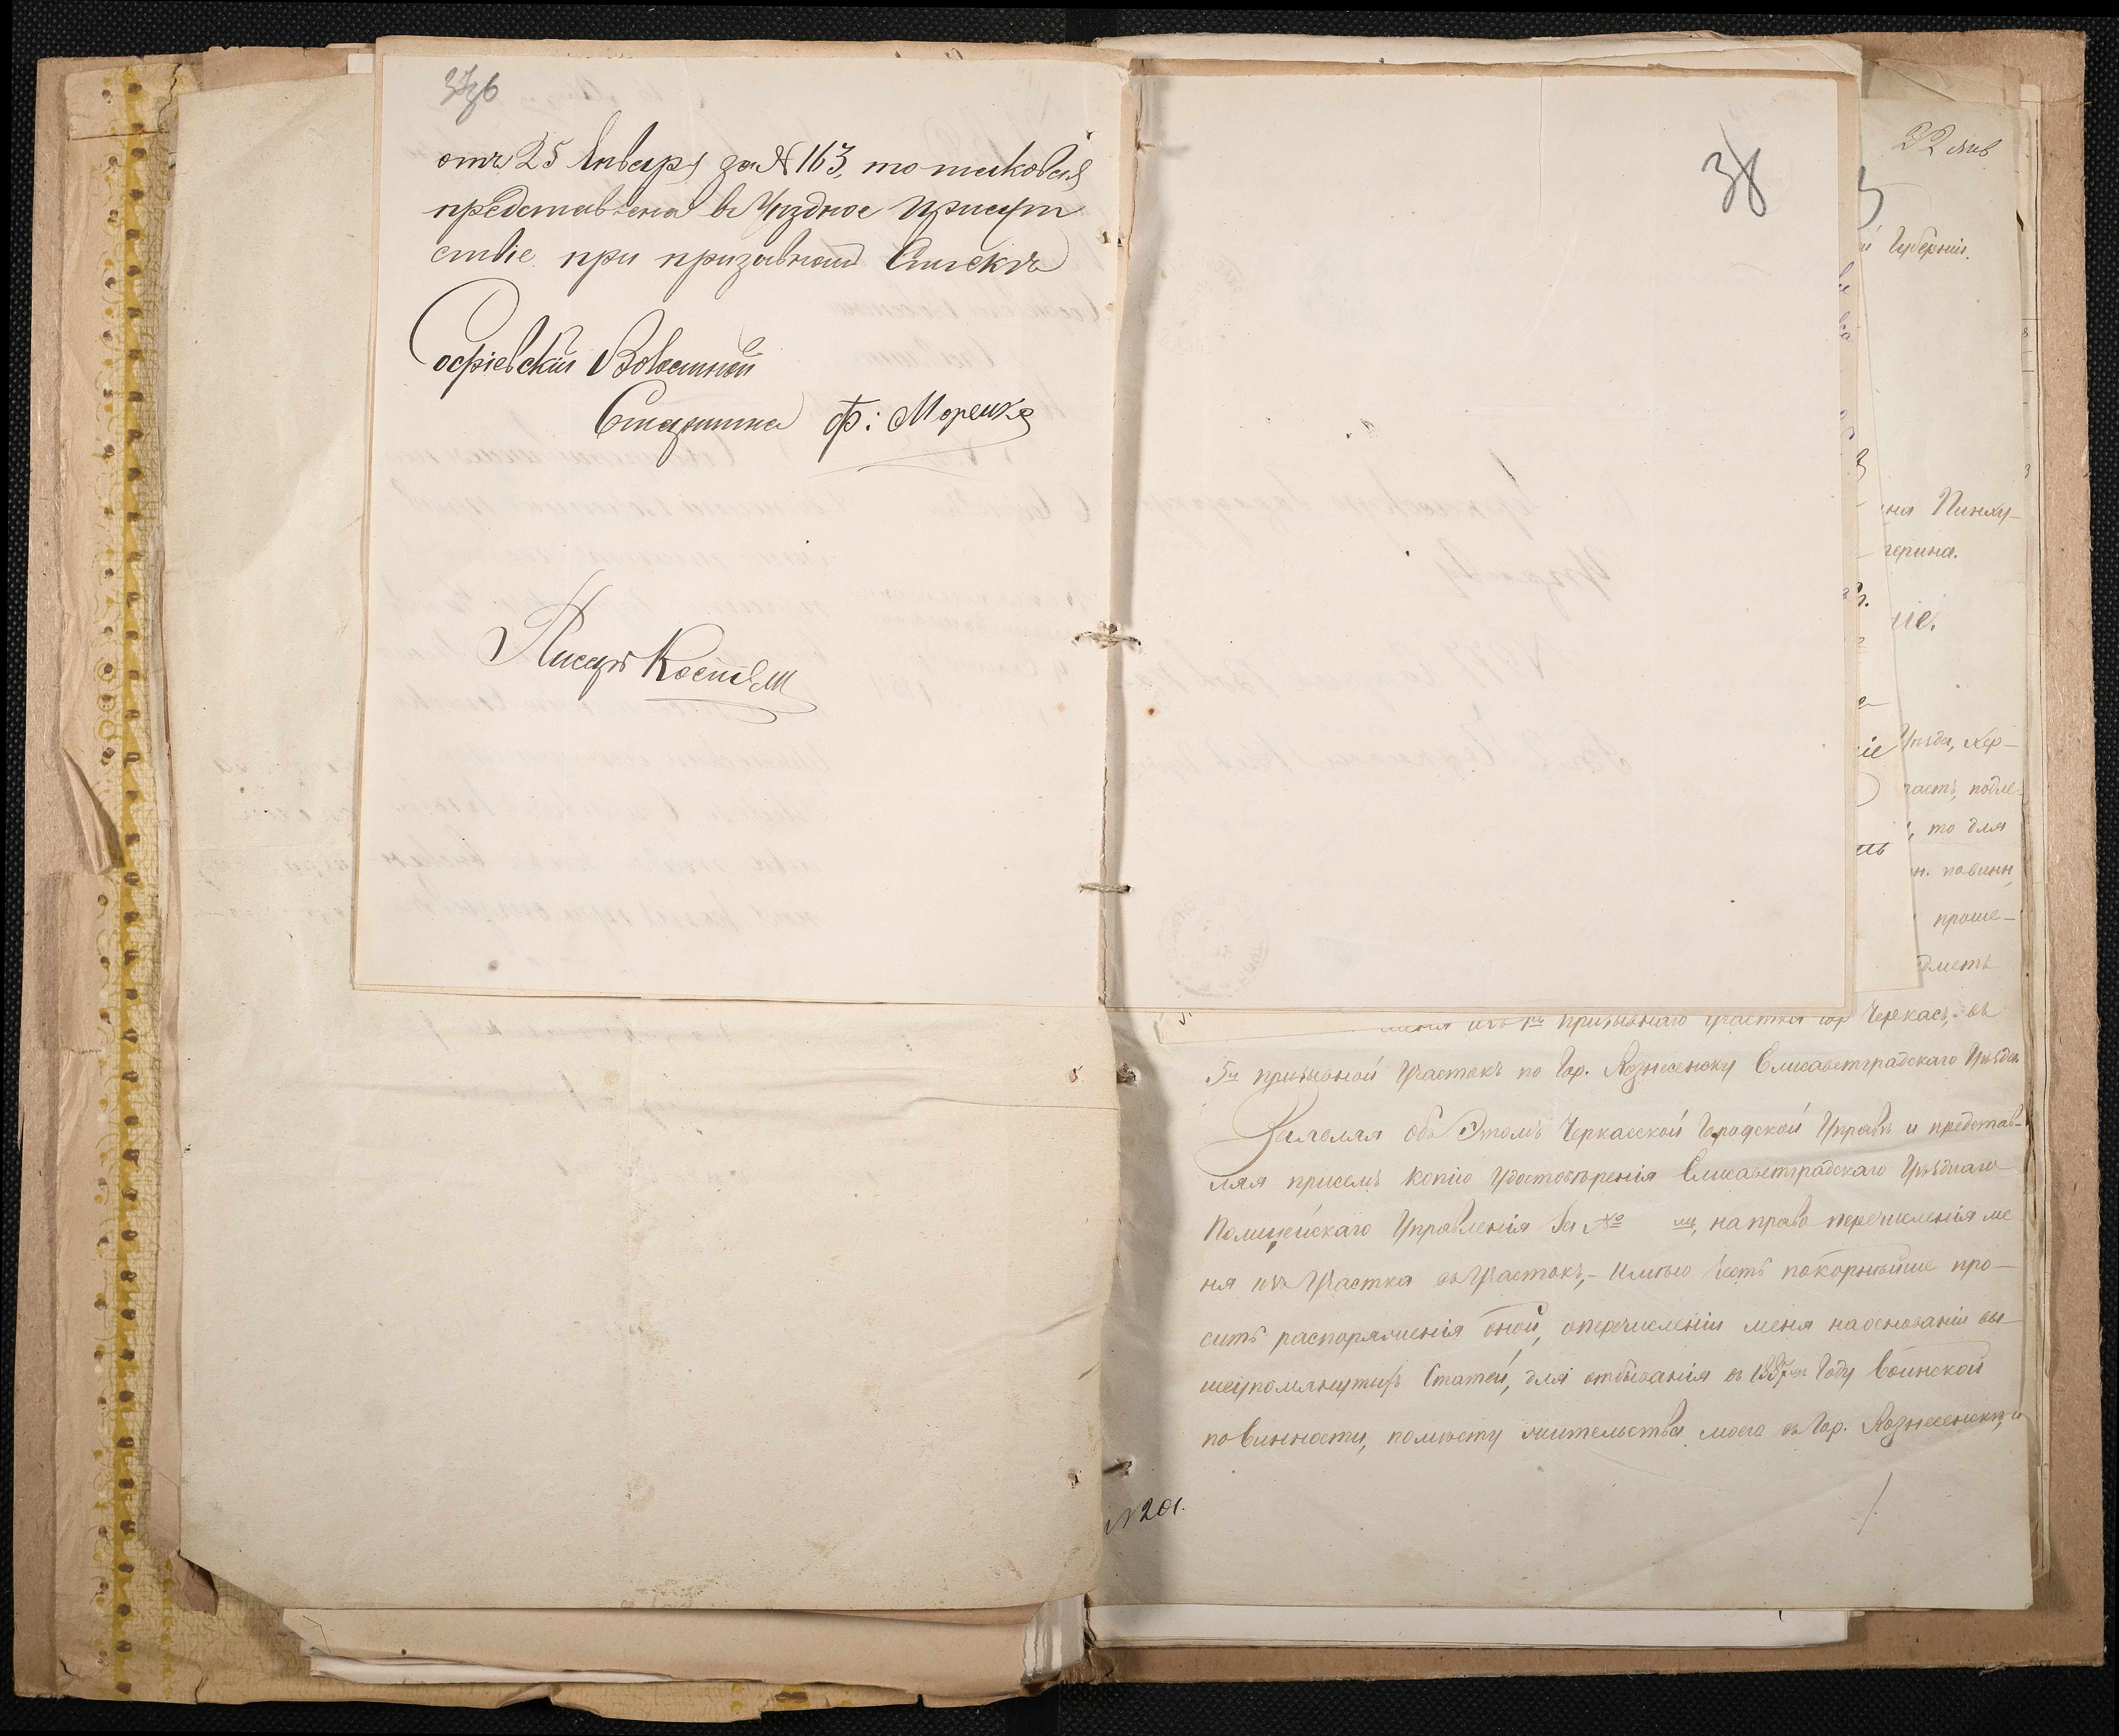 отъ 25 Января за № 163, то таковая
представлена в Уѣздное Присут
ствіе при призывномъ Спискѣ
Софіевскій Волостной
Старшина Ф: Моренко
Писарь
38
22 янв
Губерніи.
на Пинху-
герина.
ніе.
Уѣзда, Хер-
часть, подле
, то для
н. повинн
проше-
дметъ
призывнаго участка гор Черкасъ, въ
5й призывной Участокъ по Гор. Вознесенску Елисаветградскаго Уѣзда
Заявляя объ Этомъ Черкасской Городской Управѣ и представ-
ляя присемъ копію Удостовѣренія Елисаветградскаго Уѣзднаго
Полицейскаго Управленія за №, на право перечисленія ме
ня изъ Участка въ Участокъ,- Имѣю честь покорнѣйше про-
сить распоряженія оной, о перечисленіи меня на основаніи вы-
шеупомянутыхъ Статей, для отбыванія въ 1887мъ Году Воинской
повинности, по мѣсту жительства моего въ Гор. Вознесенску, и
№ 201.